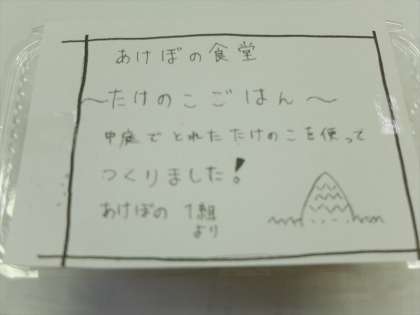 あけぼの食堂
～たけのこごはん～
中庭でとれたたけのこを使って
つくりました!
あけぼの 1組
より